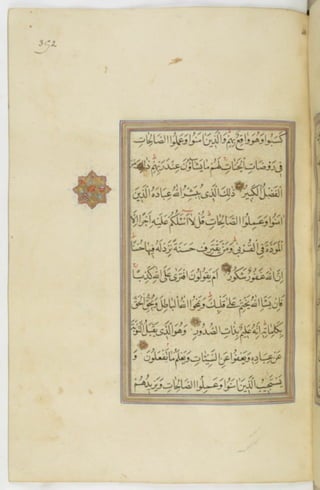 352
كَسَبُوا وَهُوَ وَاقِعٌ بِهِمْ وَالَّذِينَ آمَنُوا وَعَمِلُوا الصَّالِحَاتِ
فِي رَوْضَاتِ الْجَنَّاتِ لَهُمْ مَا يَشَاؤُنَ عِنْدَ رَبِّهِمْ ذَلِكَ هُوَ
الْفَضْلُ الْكَبِيرُ ذَلِكَ الَّذِي يُبَشِّرُ اللَّهُ عِبَادَهُ الَّذِينَ
آمَنُوا وَعَمِلُوا الصَّالِحَاتِ قُلْ لَا أَسْئَلُكُمْ عَلَيْهِ أَجْرًا إِلَّا
الْمَوَدَّةَ فِي الْقُرْبَى وَمَنْ يَقْتَرِفْ حَسَنَةً نَزِدْ لَهُ فِيهَا حُسْنًا
إِنَّ اللَّهَ غَفُورٌ شَكُورٌ أَمْ يَقُولُونَ افْتَرَى عَلَى اللَّهِ كَذِبًا
فَإِنْ يَشَأِ اللَّهُ يَخْتِمْ عَلَى قَلْبِكَ وَيَمْحُو اللَّهُ الْبَاطِلَ وَيُحِقُّ الْحَقَّ
بِكَلِمَاتِهِ إِنَّهُ عَلِيمٌ بِذَاتِ الصُّدُورِ وَهُوَ الَّذِي يَقْبَلُ التَّوْبَةَ
عَنْ عِبَادِهِ وَيَعْفُوا عَنِ السَّيِّئَاتِ وَيَعْلَمُ مَا تَفْعَلُونَ وَ
يَسْتَجِيبُ الَّذِينَ آمَنُوا وَعَمِلُوا الصَّالِحَاتِ وَيَزِيدُهُمْ